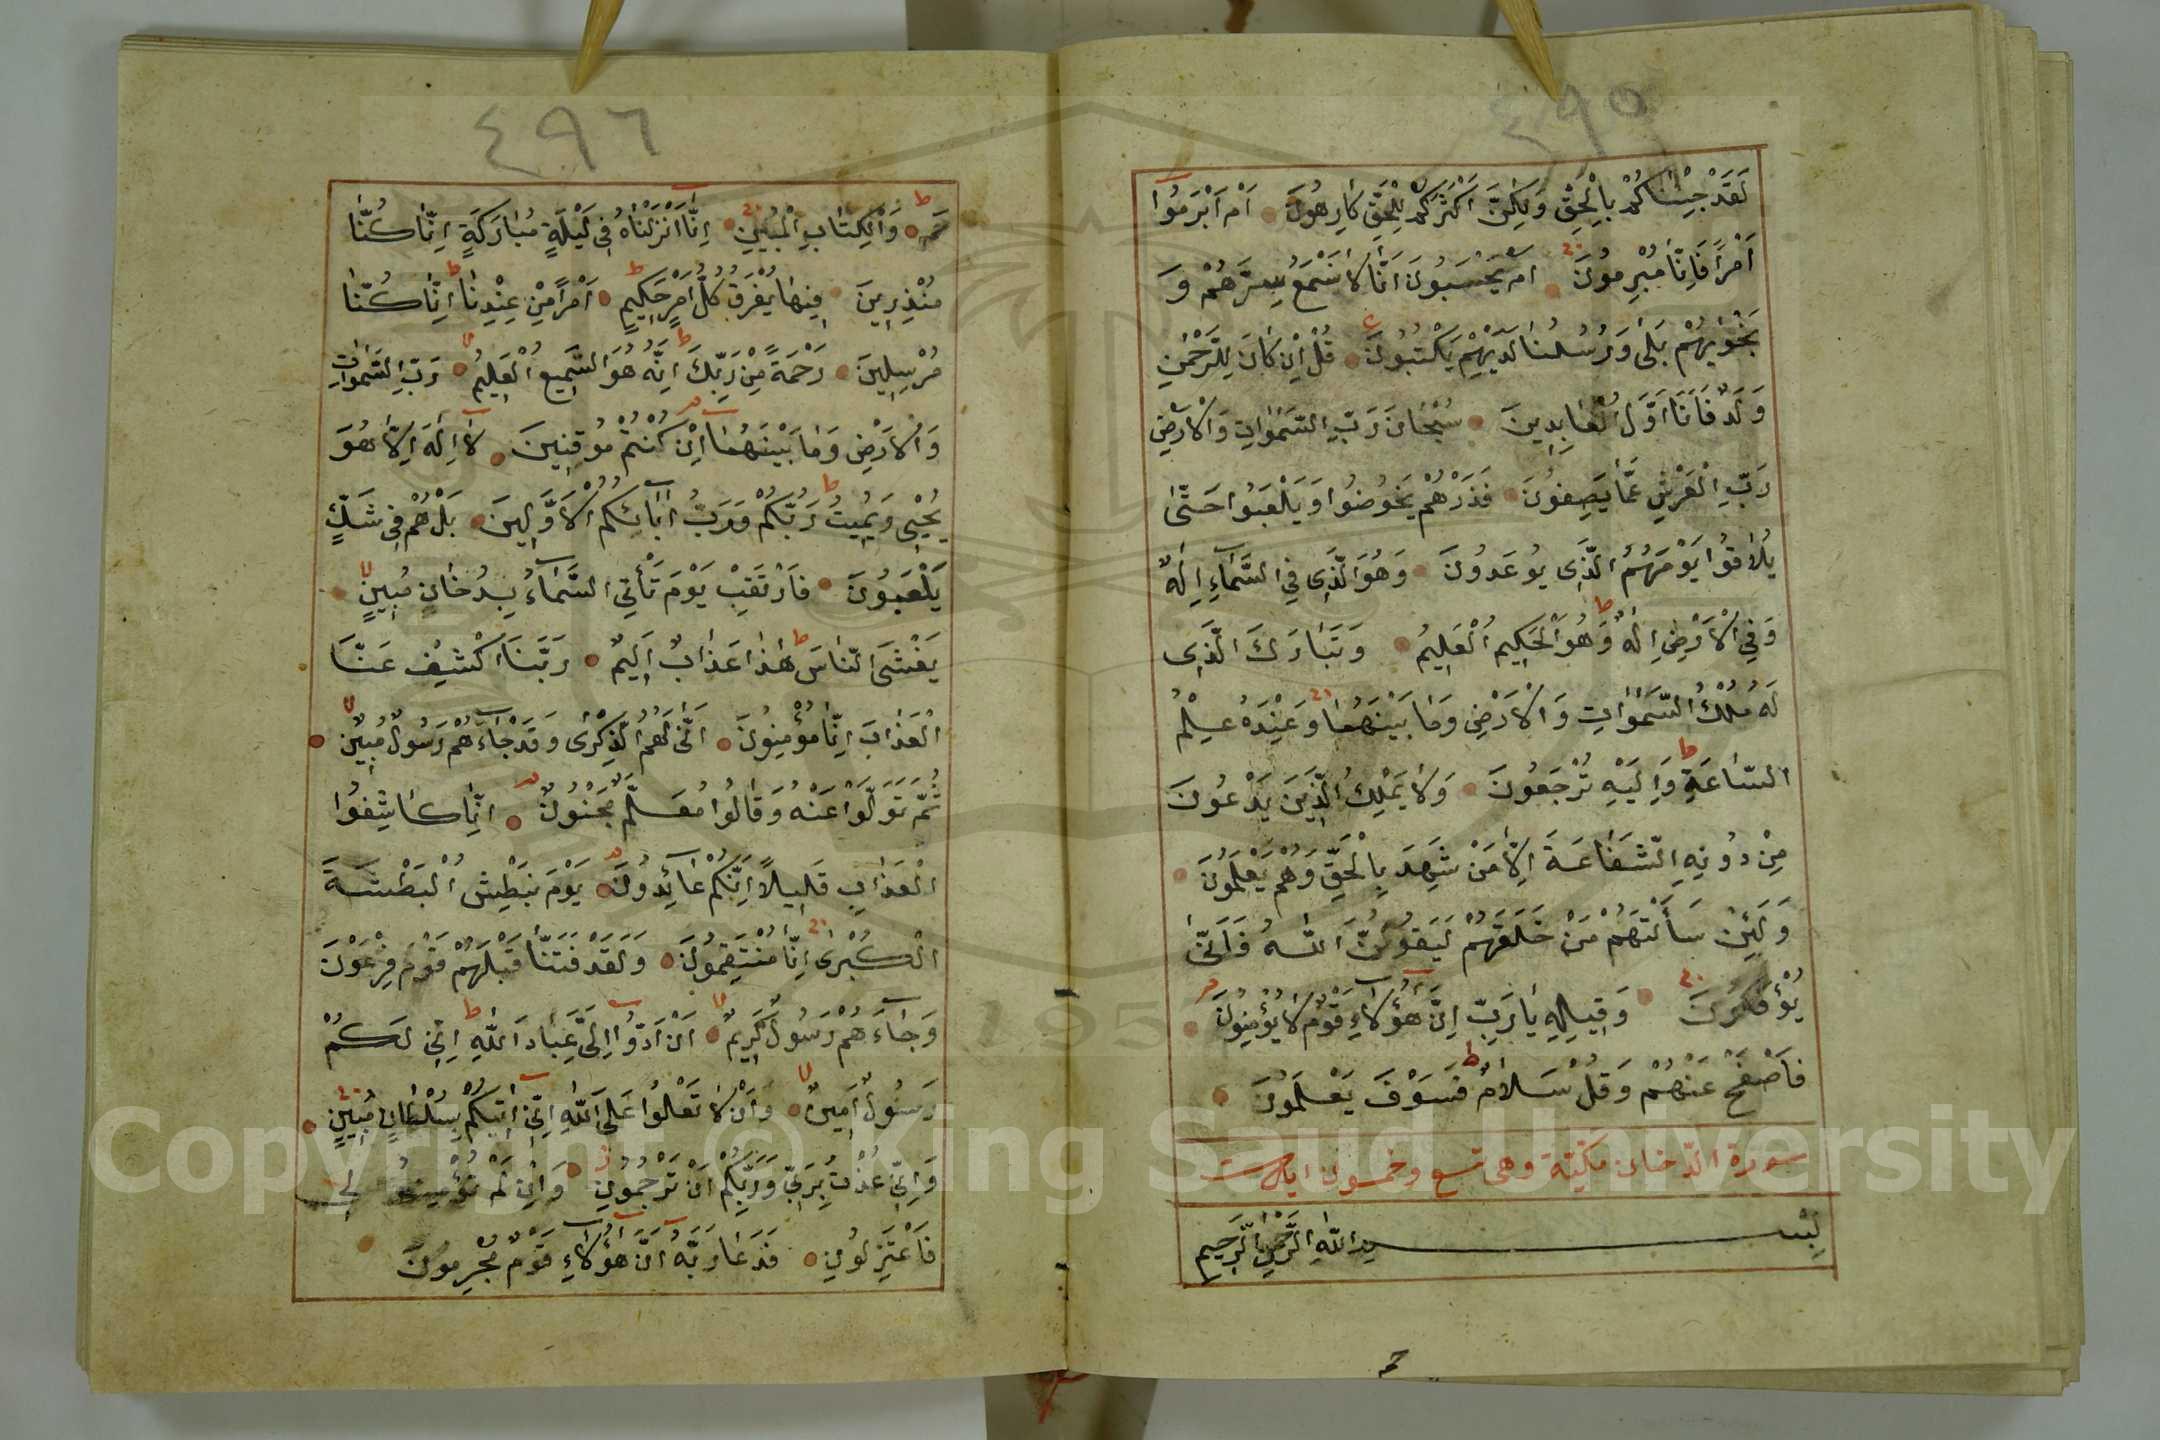 ٤٩٥
لَقَدْ جِئْنَاكُمْ بِالْحَقِّ وَلَكِنَّ اَكْثَرَكُمْ لِلْحَقِّ كَارِهُونَ اَمْ اَبْرَمُوا
اَمْرًا فَاِنَّا مُبْرِمُونَ اَمْ يَحْسَبُونَ اَنَّا لَا نَسْمَعُ سِرَّهُمْ وَ
نَجْوٰيهُمْ بَلٰى وَرُسُلُنَا لَدَيْهِمْ يَكْتُبُونَ قُلْ اِنْ كَانَ لِلرَّحْمٰنِ
وَلَدٌ فَاَنَا اَوَّلُ الْعَابِدِينَ سُبْحَانَ رَبِّ السَّمٰوَاتِ وَالْاَرْضِ
رَبِّ الْعَرْشِ عَمَّا يَصِفُونَ فَذَرْهُمْ يَخُوضُوا وَيَلْعَبُوا حَتّٰى
يُلَاقُوا يَوْمَهُمُ الَّذِى يُوعَدُونَ وَهُوَ الَّذِى فِى السَّمَاءِ اِلٰهٌ
وَفِى الْاَرْضِ اِلٰهٌ وَهُوَ الْحَكِيمُ الْعَلِيمُ وَتَبَارَكَ الَّذِى
لَهُ مُلْكُ السَّمٰوَاتِ وَالْاَرْضِ وَمَا بَيْنَهُمَا وَعِنْدَهُ عِلْمُ
السَّاعَةِ وَاِلَيْهِ تُرْجَعُونَ وَلَا يَمْلِكُ الَّذِينَ يَدْعُونَ
مِنْ دُونِهِ الشَّفَاعَةَ اِلَّا مَنْ شَهِدَ بِالْحَقِّ وَهُمْ يَعْلَمُونَ
وَلَئِنْ سَأَلْتَهُمْ مَنْ خَلَقَهُمْ لَيَقُولُنَّ اللّٰهُ فَاَنّٰى
يُؤْفَكُونَ وَقِيلِهِ يَا رَبِّ اِنَّ هٰؤُلَاءِ قَوْمٌ لَا يُؤْمِنُونَ
فَاصْفَحْ عَنْهُمْ وَقُلْ سَلَامٌ فَسَوْفَ يَعْلَمُونَ
سورة الدّخان مكيّة وهى تسع وخمسون ايات
بِسْمِ اللّٰهِ الرَّحْمٰنِ الرَّحِيمِ
حم
٤٩٦
حٰمٓ وَالْكِتَابِ الْمُبِينِ اِنَّا اَنْزَلْنَاهُ فِى لَيْلَةٍ مُبَارَكَةٍ اِنَّا كُنَّا
مُنْذِرِينَ فِيهَا يُفْرَقُ كُلُّ اَمْرٍ حَكِيمٍ اَمْرًا مِنْ عِنْدِنَا اِنَّا كُنَّا
مُرْسِلِينَ رَحْمَةً مِنْ رَبِّكَ اِنَّهُ هُوَ السَّمِيعُ الْعَلِيمُ رَبِّ السَّمٰوَاتِ
وَالْاَرْضِ وَمَا بَيْنَهُمَا اِنْ كُنْتُمْ مُوقِنِينَ لَا اِلٰهَ اِلَّا هُوَ
يُحْيِى وَيُمِيتُ رَبُّكُمْ وَرَبُّ اٰبَائِكُمُ الْاَوَّلِينَ بَلْ هُمْ فِى شَكٍّ
يَلْعَبُونَ فَارْتَقِبْ يَوْمَ تَأْتِى السَّمَاءُ بِدُخَانٍ مُبِينٍ
يَغْشَى النَّاسَ هٰذَا عَذَابٌ اَلِيمٌ رَبَّنَا اكْشِفْ عَنَّا
الْعَذَابَ اِنَّا مُؤْمِنُونَ اَنّٰى لَهُمُ الذِّكْرٰى وَقَدْ جَاءَهُمْ رَسُولٌ مُبِينٌ
ثُمَّ تَوَلَّوْا عَنْهُ وَقَالُوا مُعَلَّمٌ مَجْنُونٌ اِنَّا كَاشِفُوا
الْعَذَابِ قَلِيلًا اِنَّكُمْ عَائِدُونَ يَوْمَ نَبْطِشُ الْبَطْشَةَ
الْكُبْرٰى اِنَّا مُنْتَقِمُونَ وَلَقَدْ فَتَنَّا قَبْلَهُمْ قَوْمَ فِرْعَوْنَ
وَجَاءَهُمْ رَسُولٌ كَرِيمٌ اَنْ اَدُّوا اِلَىَّ عِبَادَ اللّٰهِ اِنِّى لَكُمْ
رَسُولٌ اَمِينٌ وَاَنْ لَا تَعْلُوا عَلَى اللّٰهِ اِنِّى اٰتِيكُمْ بِسُلْطَانٍ مُبِينٍ
وَاِنِّى عُذْتُ بِرَبِّى وَرَبِّكُمْ اَنْ تَرْجُمُونِ وَاِنْ لَمْ تُؤْمِنُوا لِى
فَاعْتَزِلُونِ فَدَعَا رَبَّهُ اَنَّ هٰؤُلَاءِ قَوْمٌ مُجْرِمُونَ
Copyright © King Saud University
1957